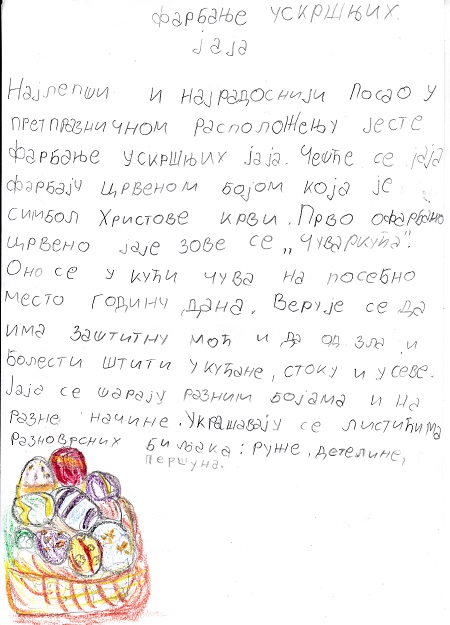 фарбање ускршњих
јаја
Најлепши и најрадоснији посао у
претпразничном расположењу јесте
фарбање ускршњих јаја. Чешће се јаја
фарбају црвеном бојом која је
симбол Христове крви. Прво офарбано
црвено јаје зове се „Чуваркућа“.
Оно се у кући чува на посебно
место годину дана. Верује се да
има заштитну моћ и да од зла и
болести штити укућане, стоку и усеве.
Јаја се шарају разним бојама и на
разне начине. Украшавају се листићима
разноврсних биљака: руже, детелине,
першуна.